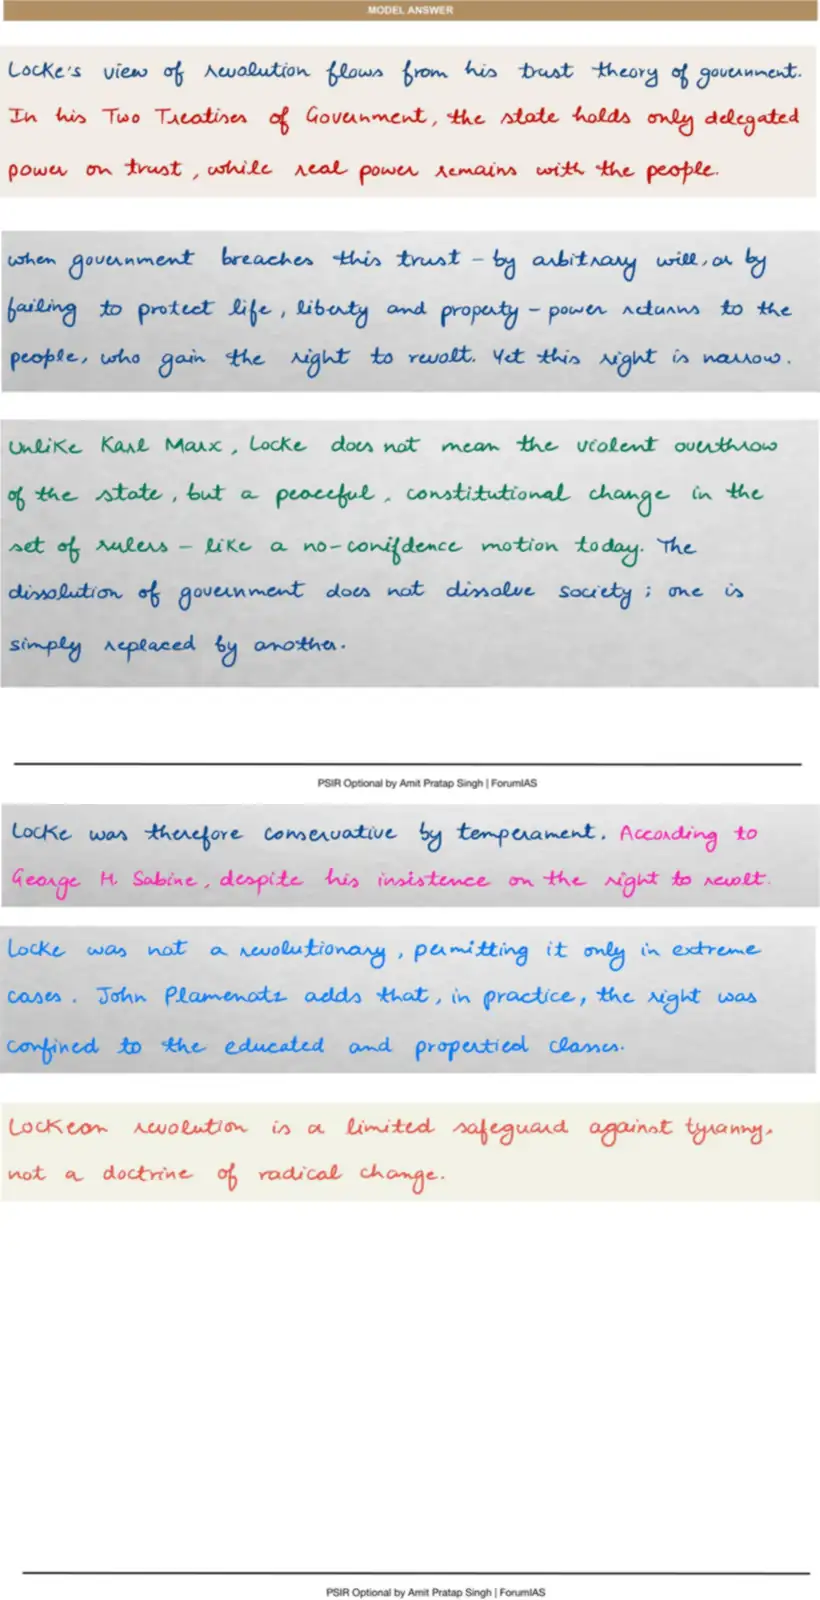 MODEL ANSWER
Locke's view of revolution flows from his trust theory of government.
In his Two Treatises of Government, the state holds only delegated
power on trust, while real power remains with the people.
when government breaches this trust – by arbitrary will, or by
failing to protect life, liberty and property – power returns to the
people, who gain the right to revolt. Yet this right is narrow.
Unlike Karl Marx, Locke does not mean the violent overthrow
of the state, but a peaceful, constitutional change in the
set of rulers – like a no-conifdence motion today. The
dissolution of government does not dissolve society; one is
simply replaced by another.
PSIR Optional by Amit Pratap Singh | ForumIAS
Locke was therefore conservative by temperament. According to
George H. Sabine, despite his insistence on the right to revolt.
Locke was not a revolutionary, permitting it only in extreme
cases. John Plamenatz adds that, in practice, the right was
confined to the educated and propertied classes.
Lockean revolution is a limited safeguard against tyranny,
not a doctrine of radical change.
PSIR Optional by Amit Pratap Singh | ForumIAS